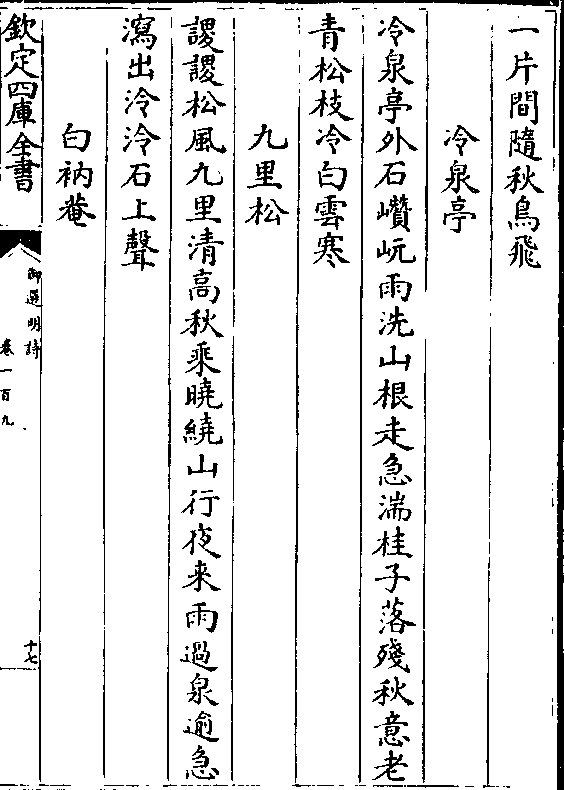 一片間隨秋鳥飛
冷泉亭
冷泉亭外石巑岏雨洗山根走急湍桂子落殘秋意老
青松枝冷白雲寒
九里松
謖謖松風九里清高秋乘曉繞山行夜來雨過泉逾急
瀉出泠泠石上聲
白衲菴
欽定四庫全書
御選明詩
卷一百九
十七